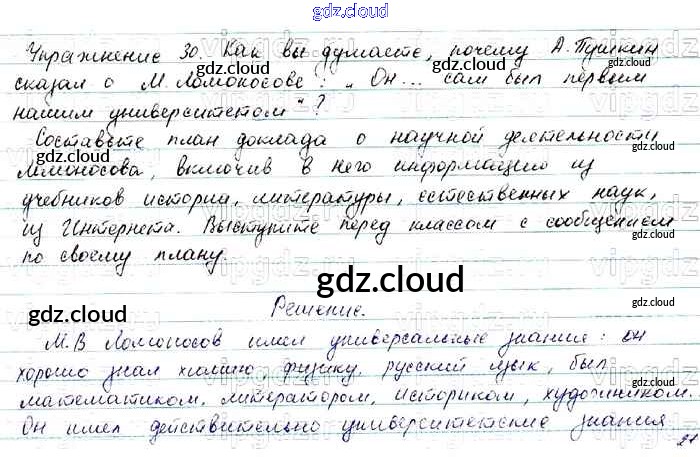 gdz.cloud
Упражнение 30. Как вы думаете, почему А. Пушкин
сказал о М. Ломоносове: „Он... сам был первым
нашим университетом"?
Составьте план доклада о научной деятельности
Ломоносова, включив в него информацию из
учебников истории, литературы, естественных наук,
из Интернета. Выступите перед классом с сообщением
по своему плану.
gdz.cloud
Решение.
М.В Ломоносов имел универсальные знания: он
хорошо знал химию, физику, русский язык, был
математиком, литератором, историком, художником.
Он имел действительно университетские знания
21